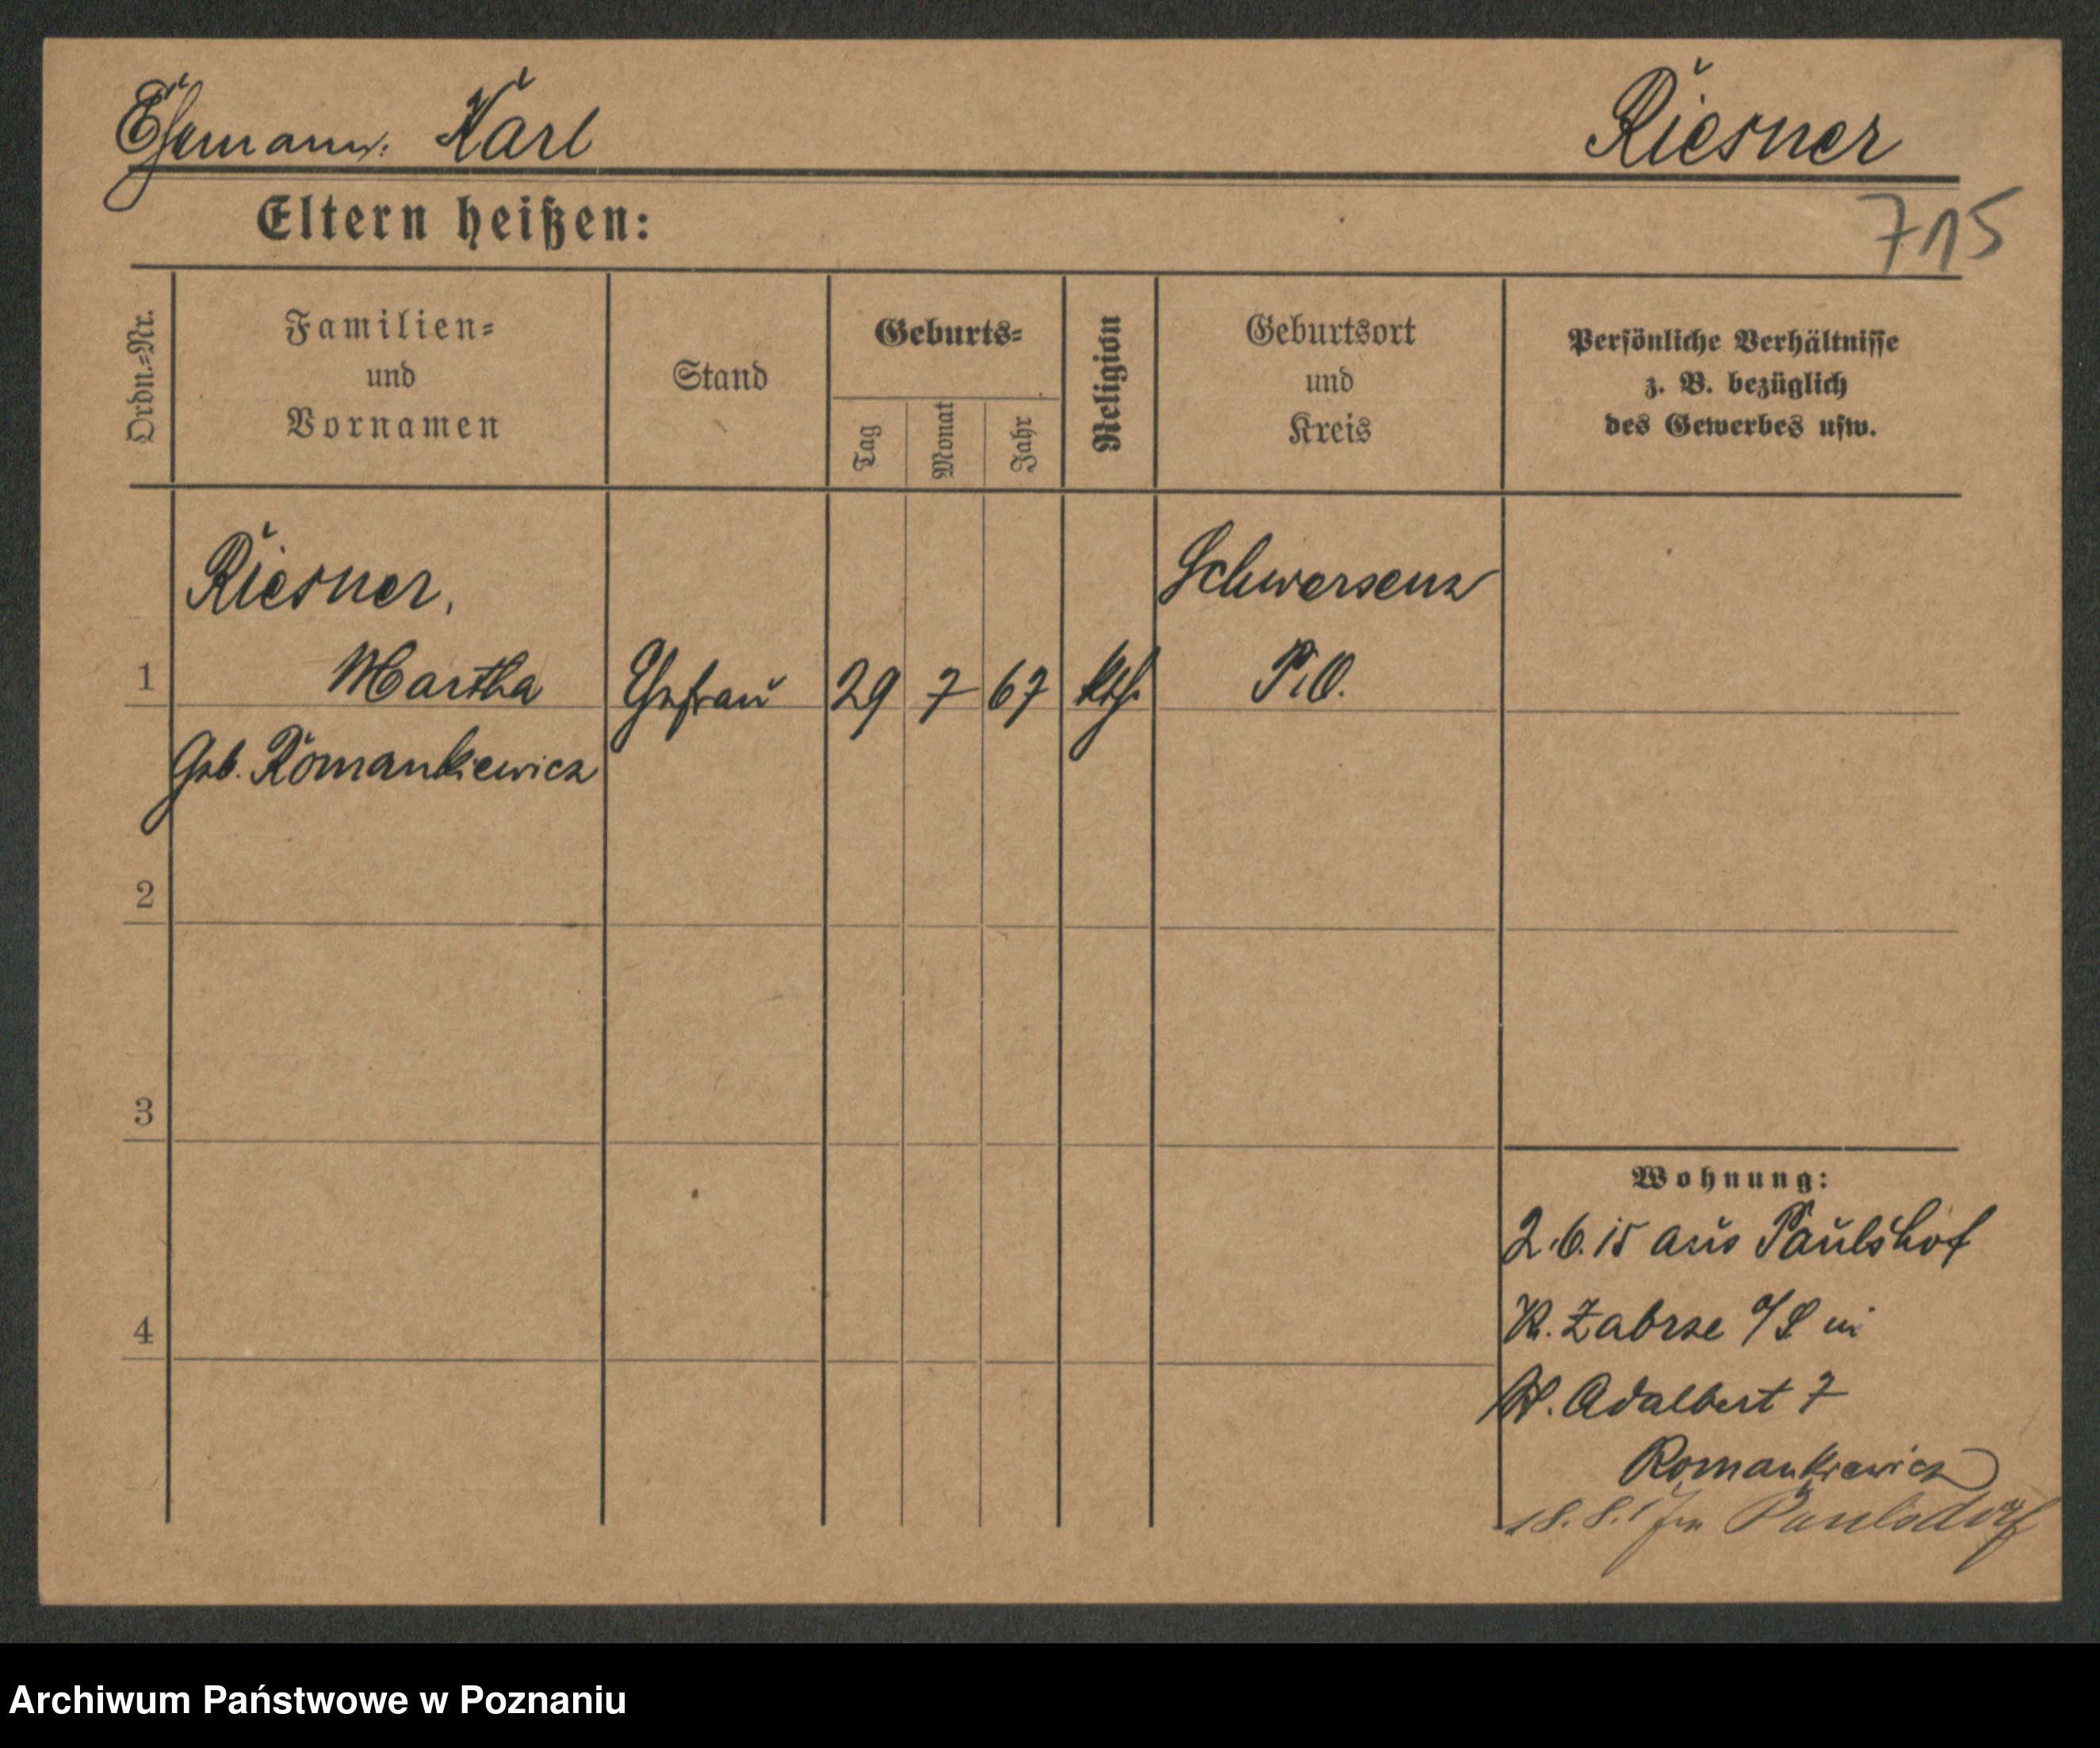 Ehemann: Karl Riesner
Eltern heißen:
715
Ordn.=Nr.
Familien=
und
Vornamen
Stand
Geburts=
Tag
Monat
Jahr
Religion
Geburtsort
und
Kreis
Persönliche Verhältnisse
z. B. bezüglich
des Gewerbes usw.
Riesner, Schwersenz
1 Martha Ehefrau 29 7 67 kth. P.O.
Geb. Romankiewicz
2
3
4
Wohnung:
2.6.15 aus Paulshof
Kr. Zabrze O/S in
St. Adalbert 7
Romankiewicz
18.8.17 in Paulsdorf
Archiwum Państwowe w Poznaniu